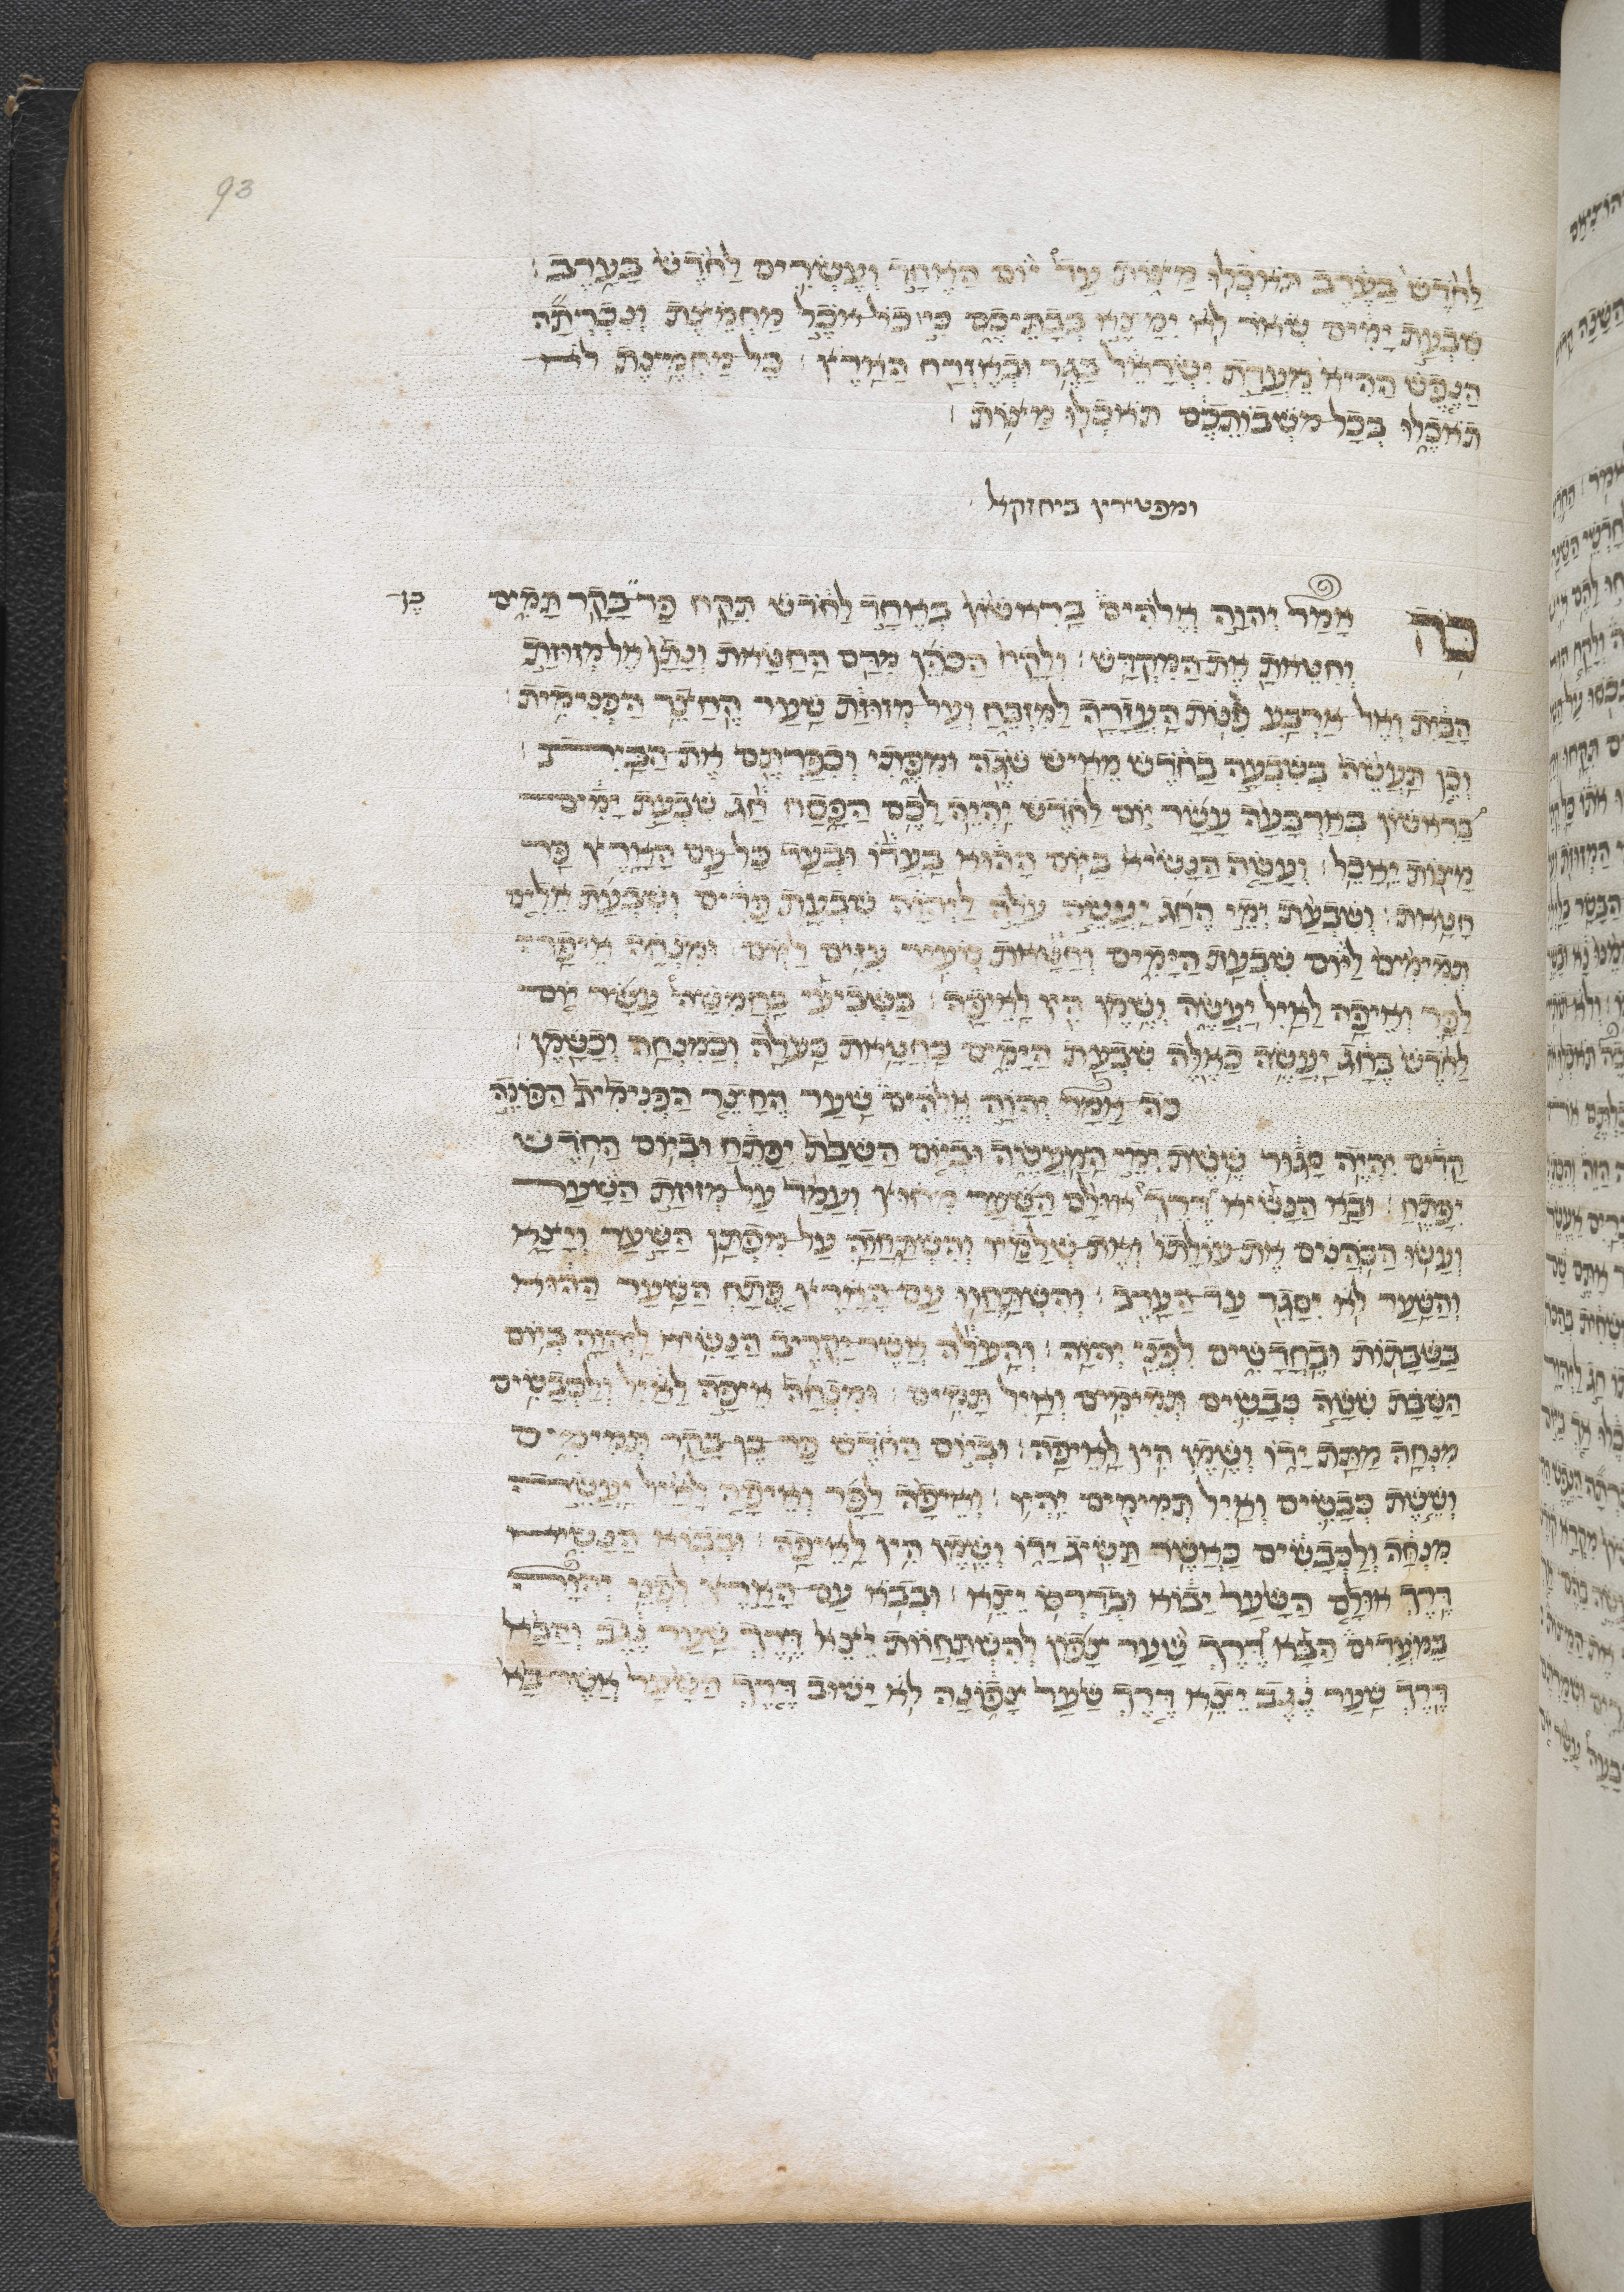 93
לַחֹדֶשׁ בָּעֶרֶב תֹּאכְלוּ מַצֹּת עַד יוֹם הָאֶחָד וְעֶשְׂרִים לַחֹדֶשׁ בָּעָרֶב
שִׁבְעַת יָמִים שְׂאֹר לֹא יִמָּצֵא בְּבָתֵּיכֶם כִּי כָּל אֹכֵל מַחְמֶצֶת וְנִכְרְתָה
הַנֶּפֶשׁ הַהִיא מֵעֲדַת יִשְׂרָאֵל בַּגֵּר וּבְאֶזְרַח הָאָרֶץ כָּל מַחְמֶצֶת לֹא
תֹאכֵלוּ בְּכֹל מֹשְׁבוֹתֵיכֶם תֹּאכְלוּ מַצּוֹת
ומפטירין ביחזקאל
כֹּה אָמַר יְהוָה אֱלֹהִים בָּרִאשׁוֹן בְּאֶחָד לַחֹדֶשׁ תִּקַּח פַּר בָּקָר תָּמִים בֶּן
וְחִטֵּאתָ אֶת הַמִּקְדָּשׁ וְלָקַח הַכֹּהֵן מִדַּם הַחַטָּאת וְנָתַן אֶל מְזוּזַת
הַבַּיִת וְאֶל אַרְבַּע פִּנּוֹת הָעֲזָרָה לַמִּזְבֵּחַ וְעַל מְזוּזַת שַׁעַר הֶחָצֵר הַפְּנִימִית
וְכֵן תַּעֲשֶׂה בְּשִׁבְעָה בַחֹדֶשׁ מֵאִישׁ שֹׁגֶה וּמִפֶּתִי וְכִפַּרְתֶּם אֶת הַבָּיִת
בָּרִאשׁוֹן בְּאַרְבָּעָה עָשָׂר יוֹם לַחֹדֶשׁ יִהְיֶה לָכֶם הַפָּסַח חָג שְׁבֻעַת יָמִים
מַצּוֹת יֵאָכֵל וְעָשָׂה הַנָּשִׂיא בַּיּוֹם הַהוּא בַּעֲדוֹ וּבְעַד כָּל עַם הָאָרֶץ פַּר
חַטָּאת וְשִׁבְעַת יְמֵי הֶחָג יַעֲשֶׂה עֹלָה לַיהוָה שִׁבְעַת פָּרִים וְשִׁבְעַת אֵלִים
תְּמִימִם לַיּוֹם שִׁבְעַת הַיָּמִים וְחַטָּאת שְׂעִיר עִזִּים לַיּוֹם וּמִנְחָה אֵיפָה
לַפָּר וְאֵיפָה לָאַיִל יַעֲשֶׂה וְשֶׁמֶן הִין לָאֵיפָה בַּשְּׁבִיעִי בַּחֲמִשָּׁה עָשָׂר יוֹם
לַחֹדֶשׁ בֶּחָג יַעֲשֶׂה כָאֵלֶּה שִׁבְעַת הַיָּמִים כַּחַטָּאת כָּעֹלָה וְכַמִּנְחָה וְכַשָּׁמֶן
כֹּה אָמַר יְהוָה אֱלֹהִים שַׁעַר הֶחָצֵר הַפְּנִימִית הַפֹּנֶה
קָדִים יִהְיֶה סָגוּר שֵׁשֶׁת יְמֵי הַמַּעֲשֶׂה וּבְיוֹם הַשַּׁבָּת יִפָּתֵחַ וּבְיוֹם הַחֹדֶשׁ
יִפָּתֵחַ וּבָא הַנָּשִׂיא דֶּרֶךְ אוּלָם הַשַּׁעַר מִחוּץ וְעָמַד עַל מְזוּזַת הַשַּׁעַר
וְעָשׂוּ הַכֹּהֲנִים אֶת עוֹלָתוֹ וְאֶת שְׁלָמָיו וְהִשְׁתַּחֲוָה עַל מִפְתַּן הַשַּׁעַר וְיָצָא
וְהַשַּׁעַר לֹא יִסָּגֵר עַד הָעָרֶב וְהִשְׁתַּחֲווּ עַם הָאָרֶץ פֶּתַח הַשַּׁעַר הַהוּא
בַּשַּׁבָּתוֹת וּבֶחֳדָשִׁים לִפְנֵי יְהוָה וְהָעֹלָה אֲשֶׁר יַקְרִיב הַנָּשִׂיא לַיהוָה בְּיוֹם
הַשַּׁבָּת שִׁשָּׁה כְבָשִׂים תְּמִימִם וְאַיִל תָּמִים וּמִנְחָה אֵיפָה לָאַיִל וְלַכְּבָשִׂים
מִנְחָה מַתַּת יָדוֹ וְשֶׁמֶן הִין לָאֵיפָה וּבְיוֹם הַחֹדֶשׁ פַּר בֶּן בָּקָר תְּמִימִם
וְשֵׁשֶׁת כְּבָשִׂים וָאַיִל תְּמִימִם יִהְיוּ וְאֵיפָה לַפָּר וְאֵיפָה לָאַיִל יַעֲשֶׂה
מִנְחָה וְלַכְּבָשִׂים כַּאֲשֶׁר תַּשִּׂיג יָדוֹ וְשֶׁמֶן הִין לָאֵיפָה וּבְבוֹא הַנָּשִׂיא
דֶּרֶךְ אוּלָם הַשַּׁעַר יָבוֹא וּבְדַרְכּוֹ יֵצֵא וּבְבוֹא עַם הָאָרֶץ לִפְנֵי יְהוָה
בַּמּוֹעֲדִים הַבָּא דֶּרֶךְ שַׁעַר צָפוֹן לְהִשְׁתַּחֲוֺת יֵצֵא דֶּרֶךְ שַׁעַר נֶגֶב וְהַבָּא
דֶּרֶךְ שַׁעַר נֶגֶב יֵצֵא דֶּרֶךְ שַׁעַר צָפוֹנָה לֹא יָשׁוּב דֶּרֶךְ הַשַּׁעַר אֲשֶׁר בָּא